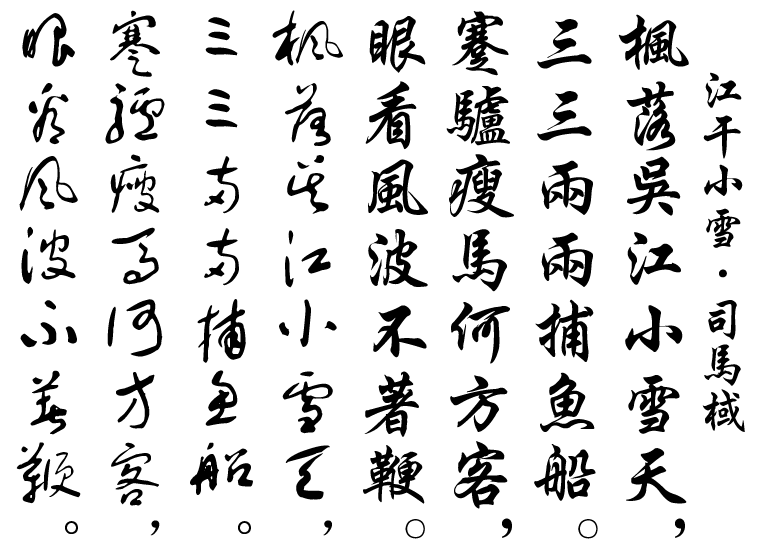 江干小雪·司馬棫
楓落吳江小雪天，
三三兩兩捕魚船。
蹇驢瘦馬何方客，
眼看風波不著鞭。
楓落吳江小雪天，
三三兩兩捕魚船。
蹇驢瘦馬何方客，
眼看風波不著鞭。